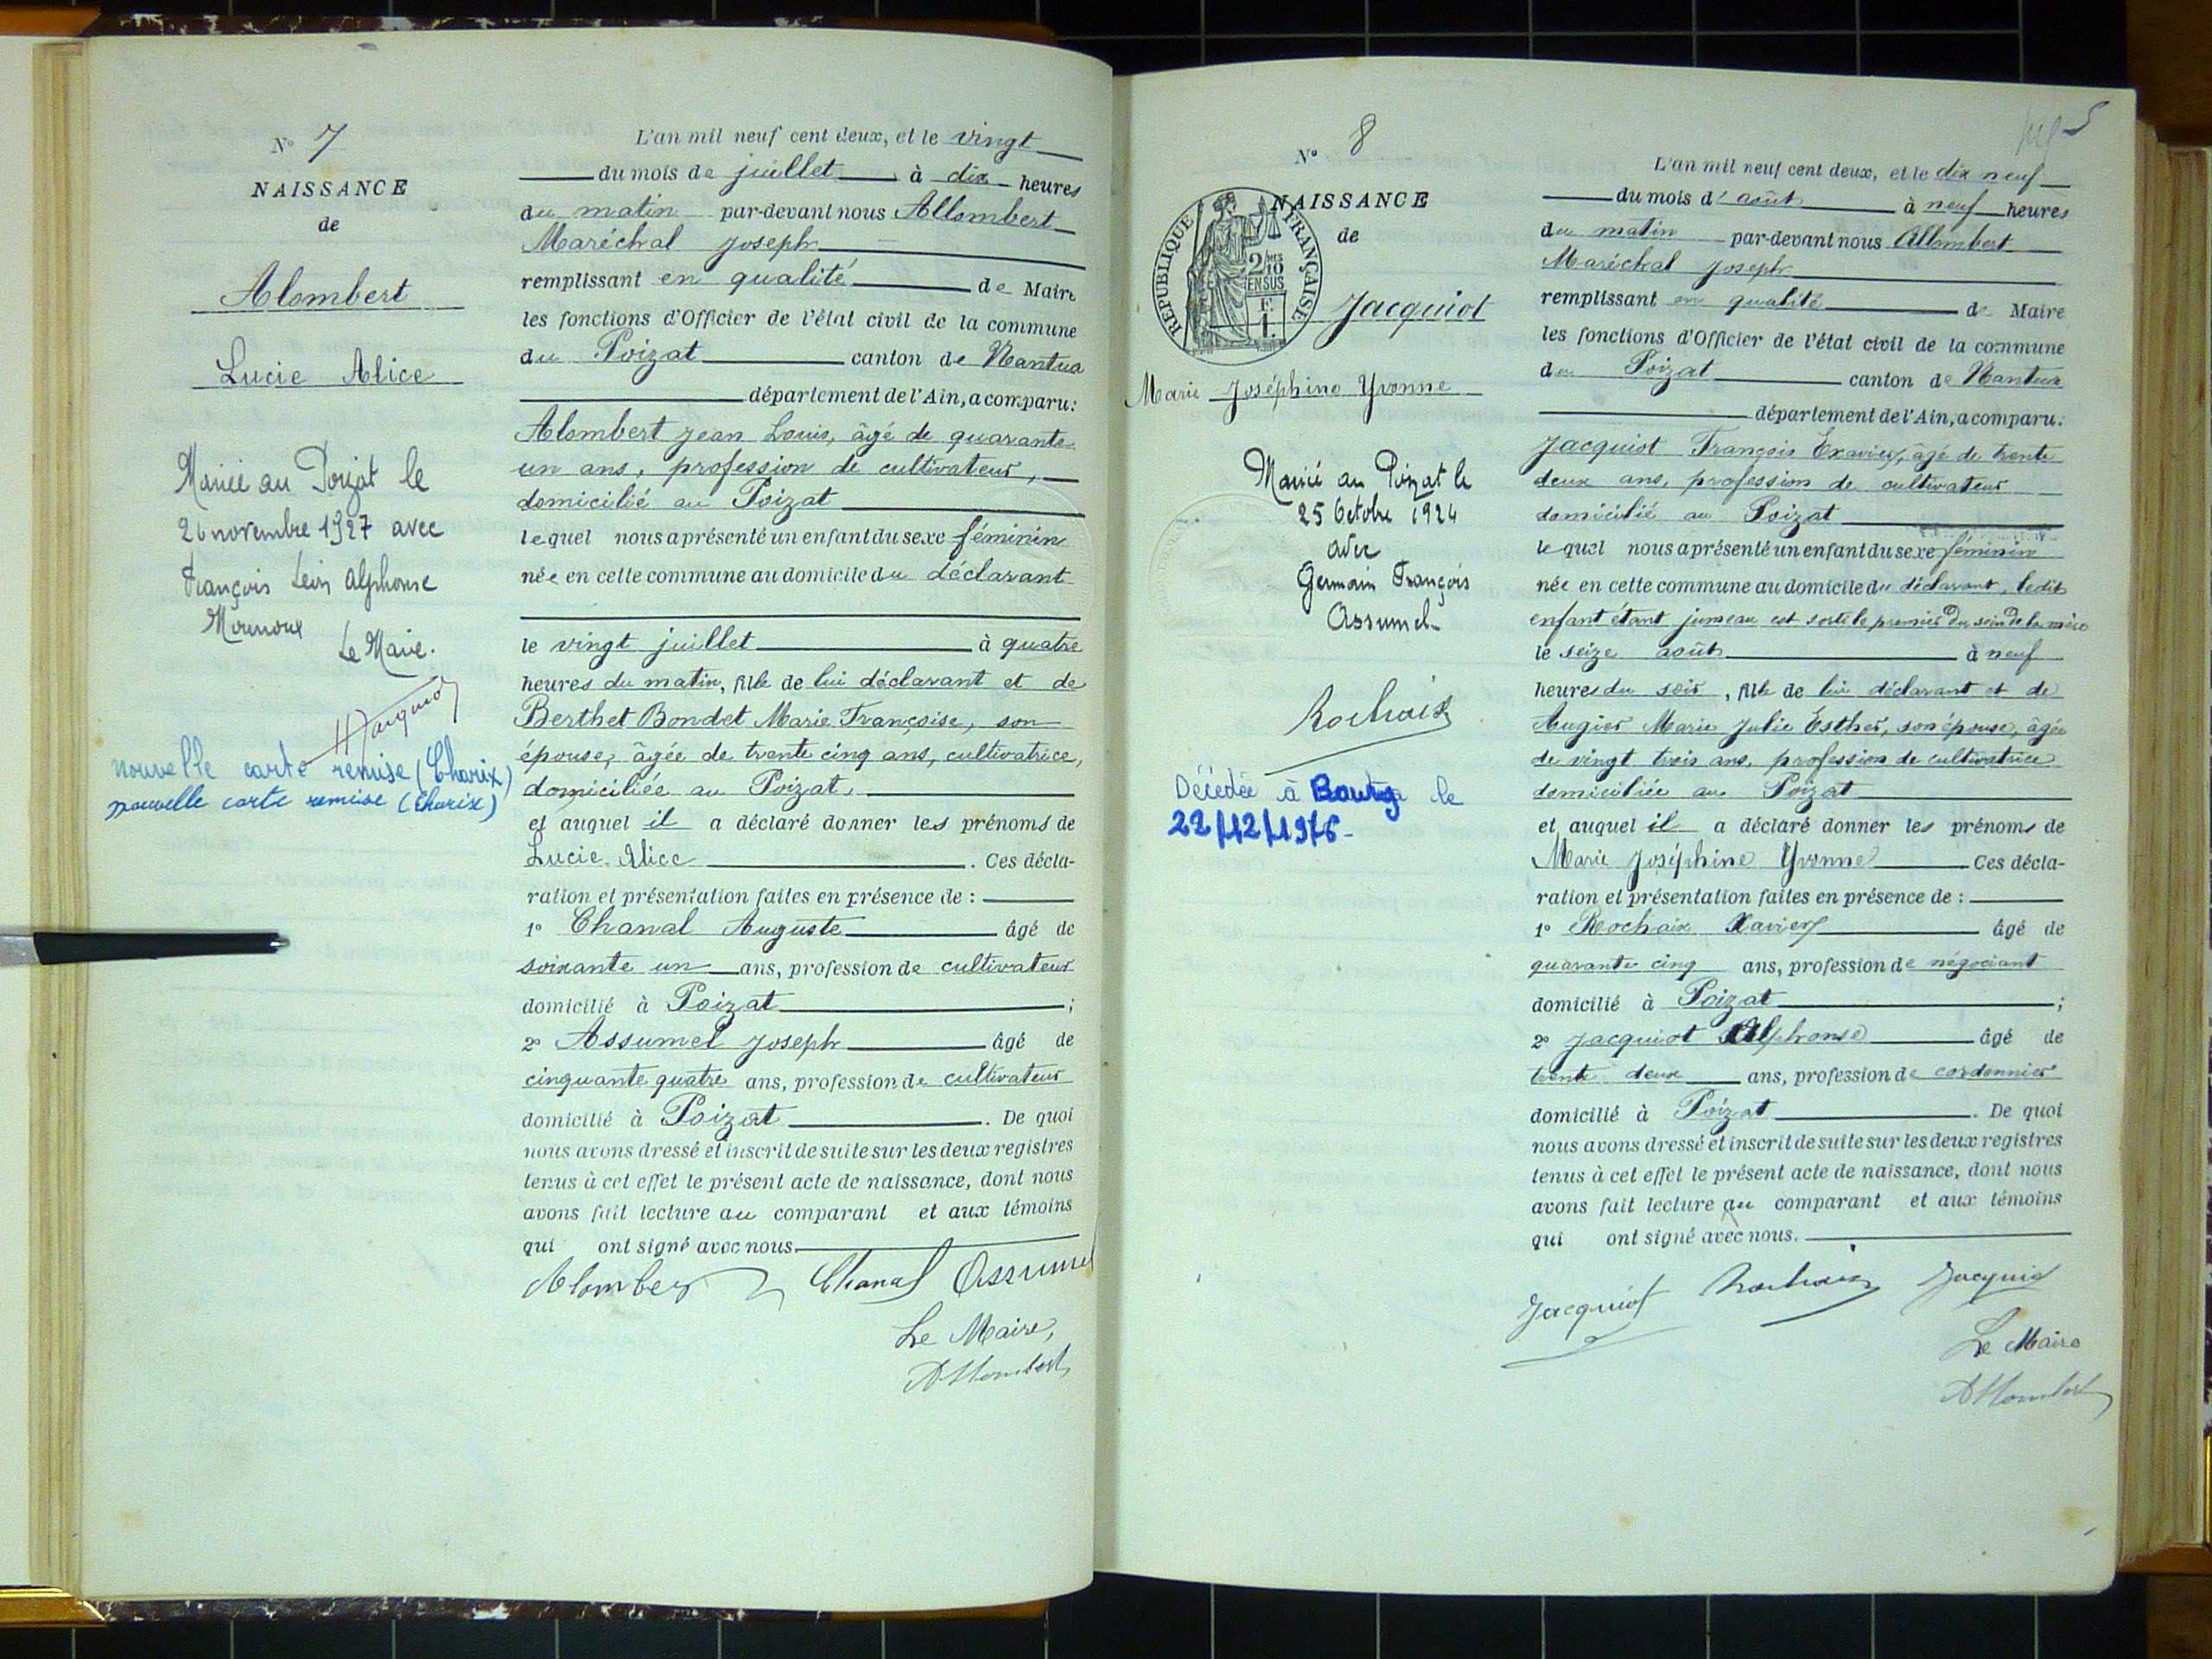 N° 7
NAISSANCE
de
Alombert
Lucie Alice
Mariée au Poizat le
26 novembre 1927 avec
François Léon Alphonse
Le Maire.
nouvelle carte remise (Charix)
nouvelle carte remise (Charix)
L'an mil neuf cent deux, et le vingt
du mois de juillet à dix heures
du matin par-devant nous Allombert
Maréchal Joseph
remplissant en qualité de Maire
les fonctions d'Officier de l'état civil de la commune
du Poizat canton de Nantua
département de l'Ain, a comparu:
Alombert Jean Louis, âgé de quarante
un ans, profession de cultivateur,
domicilié au Poizat
lequel nous a présenté un enfant du sexe féminin
née en cette commune au domicile du déclarant
le vingt juillet à quatre
heures du matin, fille de lui déclarant et de
Berthet Bondet Marie Françoise, son
épouse, âgée de trente cinq ans, cultivatrice,
domiciliée au Poizat,
et auquel il a déclaré donner les prénoms de
Lucie Alice . Ces décla-
ration et présentation faites en présence de :
1° Chanal Auguste âgé de
soixante un ans, profession de cultivateur
domicilié à Poizat ;
2° Assumel Joseph âgé de
cinquante quatre ans, profession de cultivateur
domicilié à Poizat . De quoi
nous avons dressé et inscrit de suite sur les deux registres
tenus à cet effet le présent acte de naissance, dont nous
avons fait lecture au comparant et aux témoins
qui ont signé avec nous.
Alombert Chanal Assumel
Le Maire,
Allombert
5
N° 8
NAISSANCE
de
REPUBLIQUE FRANÇAISE
2/10
EN SUS
Jacquiot
Marie Joséphine Yvonne
Mariée au Poizat le
25 Octobre 1924
avec
Germain François
Assumel
Rochaix
Décédée à Bourg le
22/12/1976-
L'an mil neuf cent deux, et le dix neuf
du mois d' août à neuf heures
du matin par-devant nous Allombert
Maréchal Joseph
remplissant en qualité de Maire
les fonctions d'Officier de l'état civil de la commune
du Poizat canton de Nantua
département de l'Ain, a comparu:
Jacquiot François Exavier, âgé de trente
deux ans, profession de cultivateur
domicilié au Poizat
lequel nous a présenté un enfant du sexe féminin
née en cette commune au domicile du déclarant, ledit
enfant étant jumeau est sorti le premier du sein de la mère
le seize août à neuf
heures du soir, fille de lui déclarant et de
Augier Marie Julie Esther, son épouse, âgée
de vingt trois ans, profession de cultivatrice
domiciliée au Poizat
et auquel il a déclaré donner les prénoms de
Marie Joséphine Yvonne Ces décla-
ration et présentation faites en présence de :
1° Rochaix Xavier âgé de
quarante cinq ans, profession de négociant
domicilié à Poizat ;
2° Jacquiot Alphonse âgé de
trente deux ans, profession de cordonnier
domicilié à Poizat . De quoi
nous avons dressé et inscrit de suite sur les deux registres
tenus à cet effet le présent acte de naissance, dont nous
avons fait lecture au comparant et aux témoins
qui ont signé avec nous.
Jacquiot Rochaix Jacquiot
Le Maire
Allombert